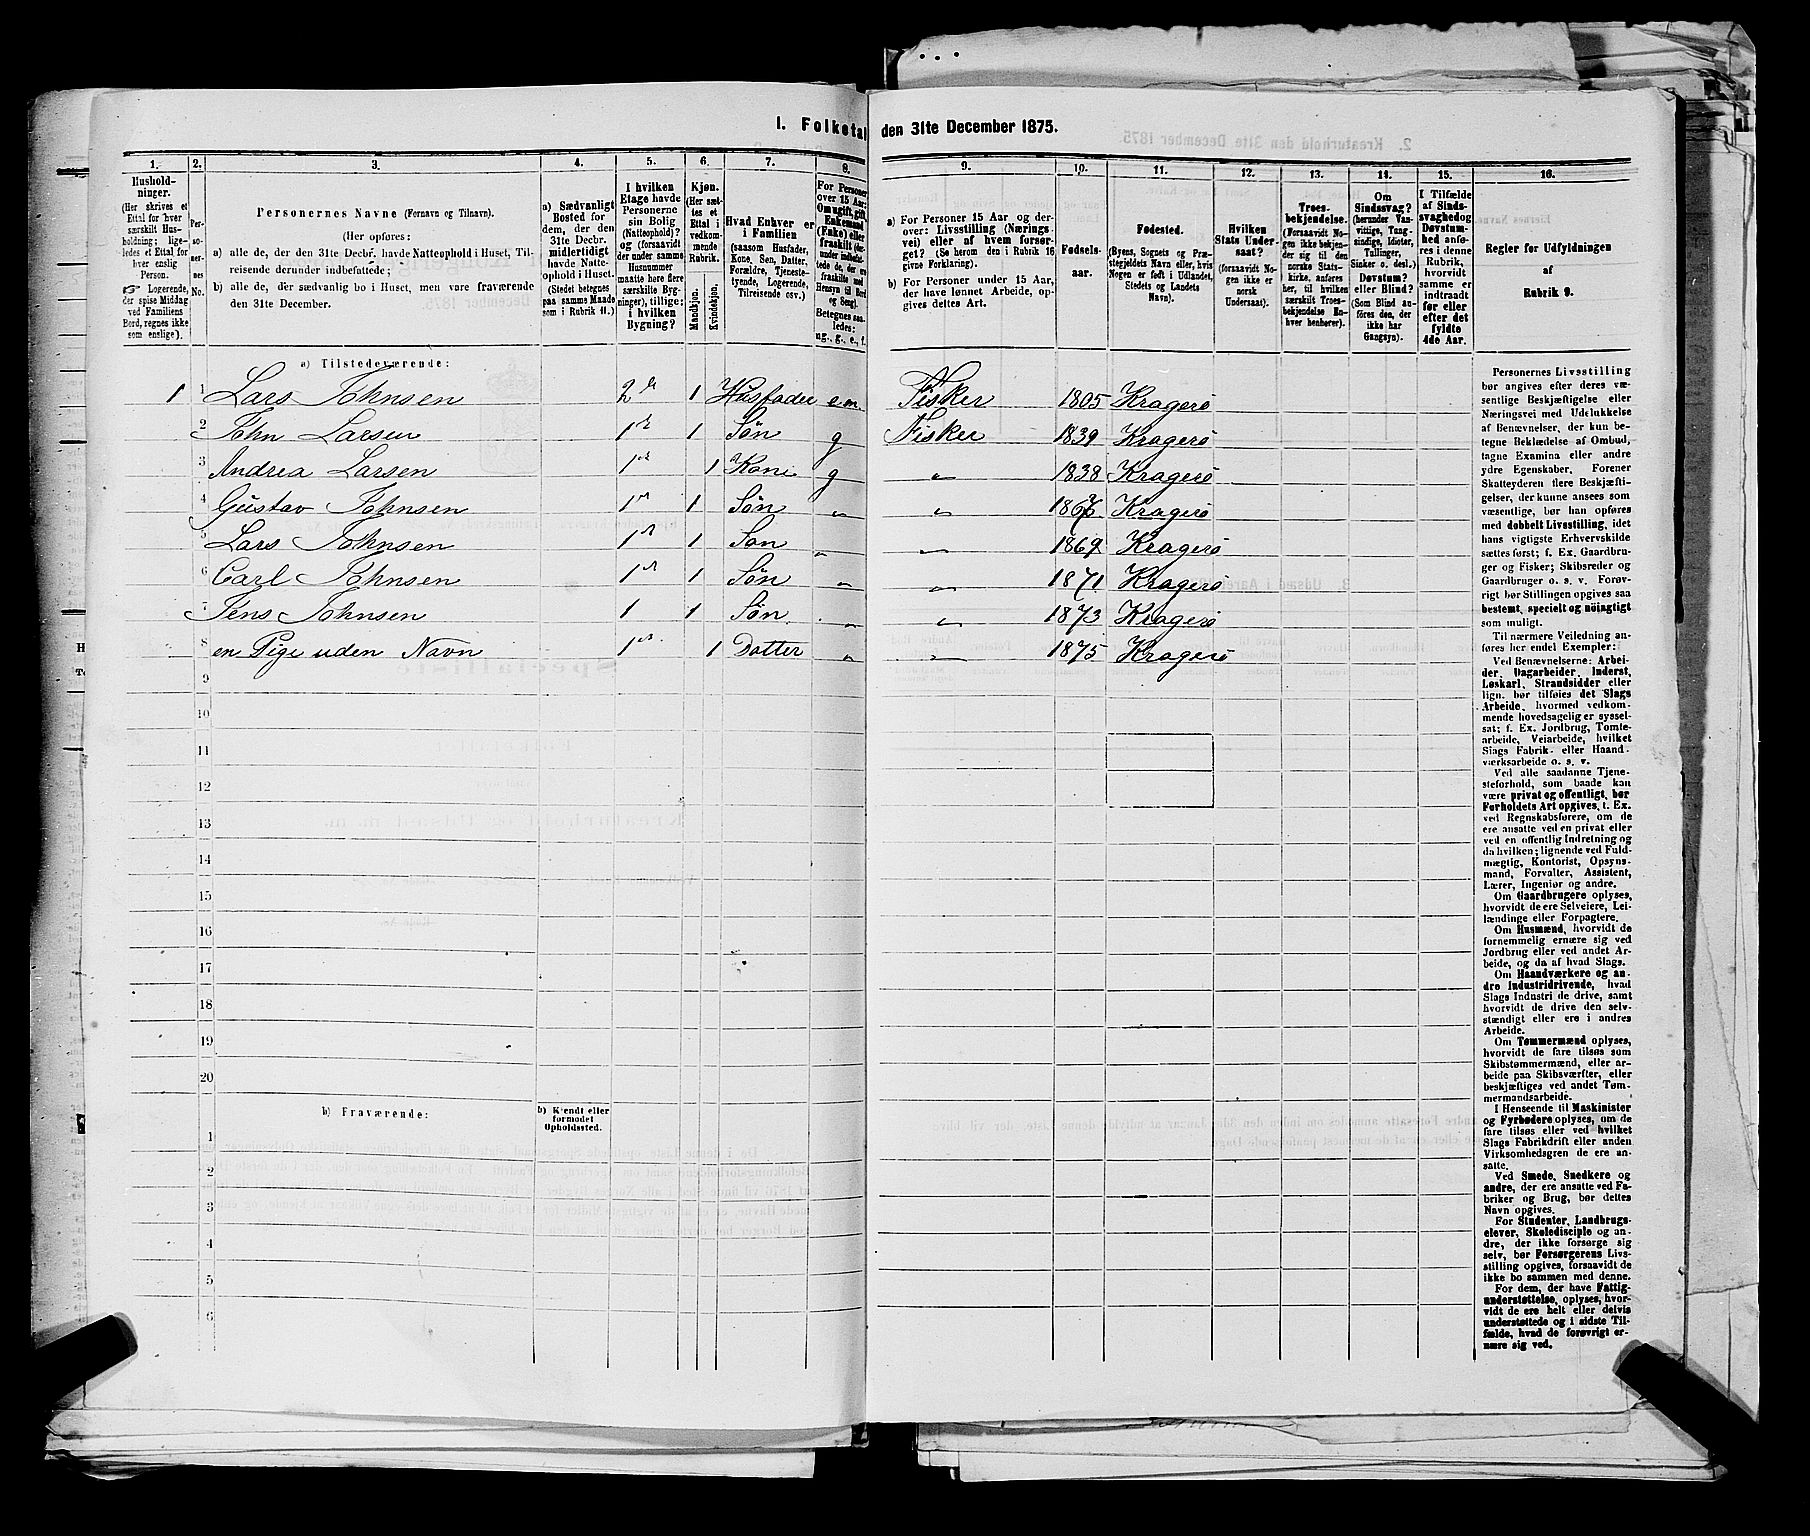 1. Folketal den 31te December 1875.
1. 2. 3. 4. 5. 6. 7. 8. 9. 10. 11. 12. 13. 14. 15. 16.
Hushold-
ninger.
(Her skrives et
Ettal for hver
særskilt Hus-
holdning; lige-
ledes et Ettal for
hver enslig
Person.
☞ Logerende,
der spise Middag
ved Familiens
Bord, regnes ikke
som enslige).
Per-
so-
ner-
nes
No.
Personernes Navne (Fornavn og Tilnavn).
(Her opføres:
a) alle de, der den 31te Decbr. havde Natteophold i Huset, Til-
reisende derunder indbefattede;
b) alle de, der sædvanlig bo i Huset, men vare fraværende
den 31te December.
a) Sædvanligt
Bosted for
dem, der den
31te Decbr.
midlertidigt
havde Natte-
ophold i Huset.
(Stedet betegnes
paa samme Maade
som i Rubrik 11.)
I hvilken
Etage havde
Personerne
sin Bolig
(Natteophold)?
og (forsaavidt
der under samme
Husnummer
maatte høre flere
særskilte Byg-
ninger), tillige:
i hvilken
Bygning?
Kjøn.
(Her sæt-
tes et
Ettal i
vedkom-
mende
Rubrik.
Mandkjøn.
Kvindekjøn.
Hvad Enhver er
i Familien
(saasom Husfader,
Kone, Søn, Datter,
Forældre, Tjeneste-
tyende, Logerende,
Tilreisende osv.)
For Personer
over 15 Aar:
Om ugift, gift,
Enkemand
(Enke) eller
fraskilt
Betegnes saa-
ledes:
ug., g., e., f.
a) For Personer 15 Aar og der-
over: Livsstilling (Nærings-
vei) eller af hvem forsør-
get? (Se herom den i Rubrik 16
givne Forklaring).
b) For Personer under 15 Aar,
der have lønnet Arbeide, op-
gives dettes Art.
Fødsels-
aar.
Fødested.
(Byens, Sognets og Præ-
stegjeldets Navn eller, hvis
Nogen er født i Udlandet,
Stedets og Landets
Navn).
Hvilken
Stats Under-
saat?
(forsaavidt No-
gen ikke er
norsk
Undersaat).
Troes-
bekjendelse.
(Forsaavidt No-
gen ikke bekjen-
der sig til den
norske Stats-
kirke, anføres
her, til hvilken
særskilt Troes-
bekjendelse En-
hver henhører).
Om
Sindssvag?
(herunder Van-
vittige, Tung-
sindige, Idioter,
Tullinger,
Sinker o. desl.)
Døvstum?
eller Blind?
(Som Blind an-
føres den, der
ikke har
Gangsyn).
I Tilfælde
af Sinds-
svaghed og
Døvstum-
hed anfø-
res i denne
Rubrik,
hvorvidt
samme er
indtraadt
før eller
efter det
fyldte
4de Aar.
Regler for Udfyldningen
af
Rubrik 9.
a) Tilstedeværende:
1 1 Lars Johnsen 2 1 Husfader em. Fisker 1805 Kragerø
2 John Larsen 1 1 Søn g Fisker 1839 Kragerø
3 Andrea Larsen 1 1 Kone g " 1838 Kragerø
4 Gustav Johnsen 1 1 Søn " " Kragerø
5 Lars Johnsen 1 1 Søn " " 1869 Kragerø
6 Carl Johnsen 1 1 Søn " " 1871 Kragerø
7 Jens Johnsen 1 1 Søn " " 1873 Kragerø
8 en Pige uden Navn 1 1 Datter " " 1875 Kragerø
9
10
11
12
13
14
15
16
17
18
19
20
b) Fraværende:
b) Kjendt eller
formodet
Opholdssted.
1
2
3
4
5
6
Personernes Livsstilling
bør angives efter deres væ-
sentlige Beskjæftigelse eller
Næringsvei med Udelukkelse
af Benævnelser, der kun be-
tegne Beklædelse af Ombud,
tagne Examina eller andre
ydre Egenskaber. Forener
Skatteyderen flere Beskjæfti-
gelser, der kunne ansees som
væsentlige, bør han opføres
med dobbelt Livsstilling, idet
hans vigtigste Erhvervskilde
sættes først; f. Ex. Gaardbru-
ger og Fisker; Skibsreder og
Gaardbruger o. s. v. Forøv-
rigt bør Stillingen opgives saa
bestemt, specielt og nöiagtigt
som muligt.
Til nærmere Veiledning an-
føres her endel Exempler:
Ved Benævnelserne: Arbei-
der, Dagarbeider, Inderst,
Løskarl, Strandsidder eller
lign. bør tilføies det Slags
Arbeide, hvormed vedkom-
mende hovedsagelig er syssel-
sat; f. Ex. Jordbrug, Tomte-
arbeide, Veiarbeide, hvilket
Slags Fabrik- eller Haand-
værksarbeide o. s. v.
Ved alle saadanne Tjene-
steforhold, som baade kan
være privat og offentligt, bør
Forholdets Art opgives, t. Ex.
ved Regnskabsførere, om de
ere ansatte ved en privat eller
ved en offentlig Indretning og
da hvilken; lignende ved Fuld-
mægtig, Kontorist, Opsyns-
mand, Forvalter, Assistent,
Lærer, Ingeniør og andre.
Om Gaardbrugere oplyses,
hvorvidt de ere Selveiere, Lei-
lændinge eller Forpagtere.
Om Husmænd, hvorvidt de
fornemmelig ernære sig ved
Jordbrug eller ved andet Ar-
beide, og da af hvad Slags.
Om Haandværkere og an-
dre Industridrivende, hvad
Slags Industri de drive, samt
hvorvidt de drive den selv-
stændigt eller ere i andres
Arbeide.
Om Tømmermænd oplyses,
hvorvidt de fare tilsøs som
Skibstømmermænd, eller ar-
beide paa Skibsværfter, eller
beskjæftiges ved andet Tøm-
mermandsarbeide.
I Henseende til Maskinister
og Fyrbødere oplyses, om de
fare tilsøs eller ved hvilket
Slags Fabrikdrift eller anden
Virksomhedsgren de ere an-
satte.
Ved Smede, Snedkere og
andre, der ere ansatte ved Fa-
briker og Brug, bør dettes
Navn opgives.
For Studenter, Landbrugs-
elever, Skoledisciple og an-
dre, der ikke forsørge sig
selv, bør Forsørgerens Livs-
stilling opgives, forsaavidt de
ikke bo sammen med denne.
For dem, der have Fattig-
understøttelse, oplyses, hvor-
vidt de ere helt eller delvis
understøttede og i sidste Til-
fælde, hvad de forøvrigt er-
nære sig ved.